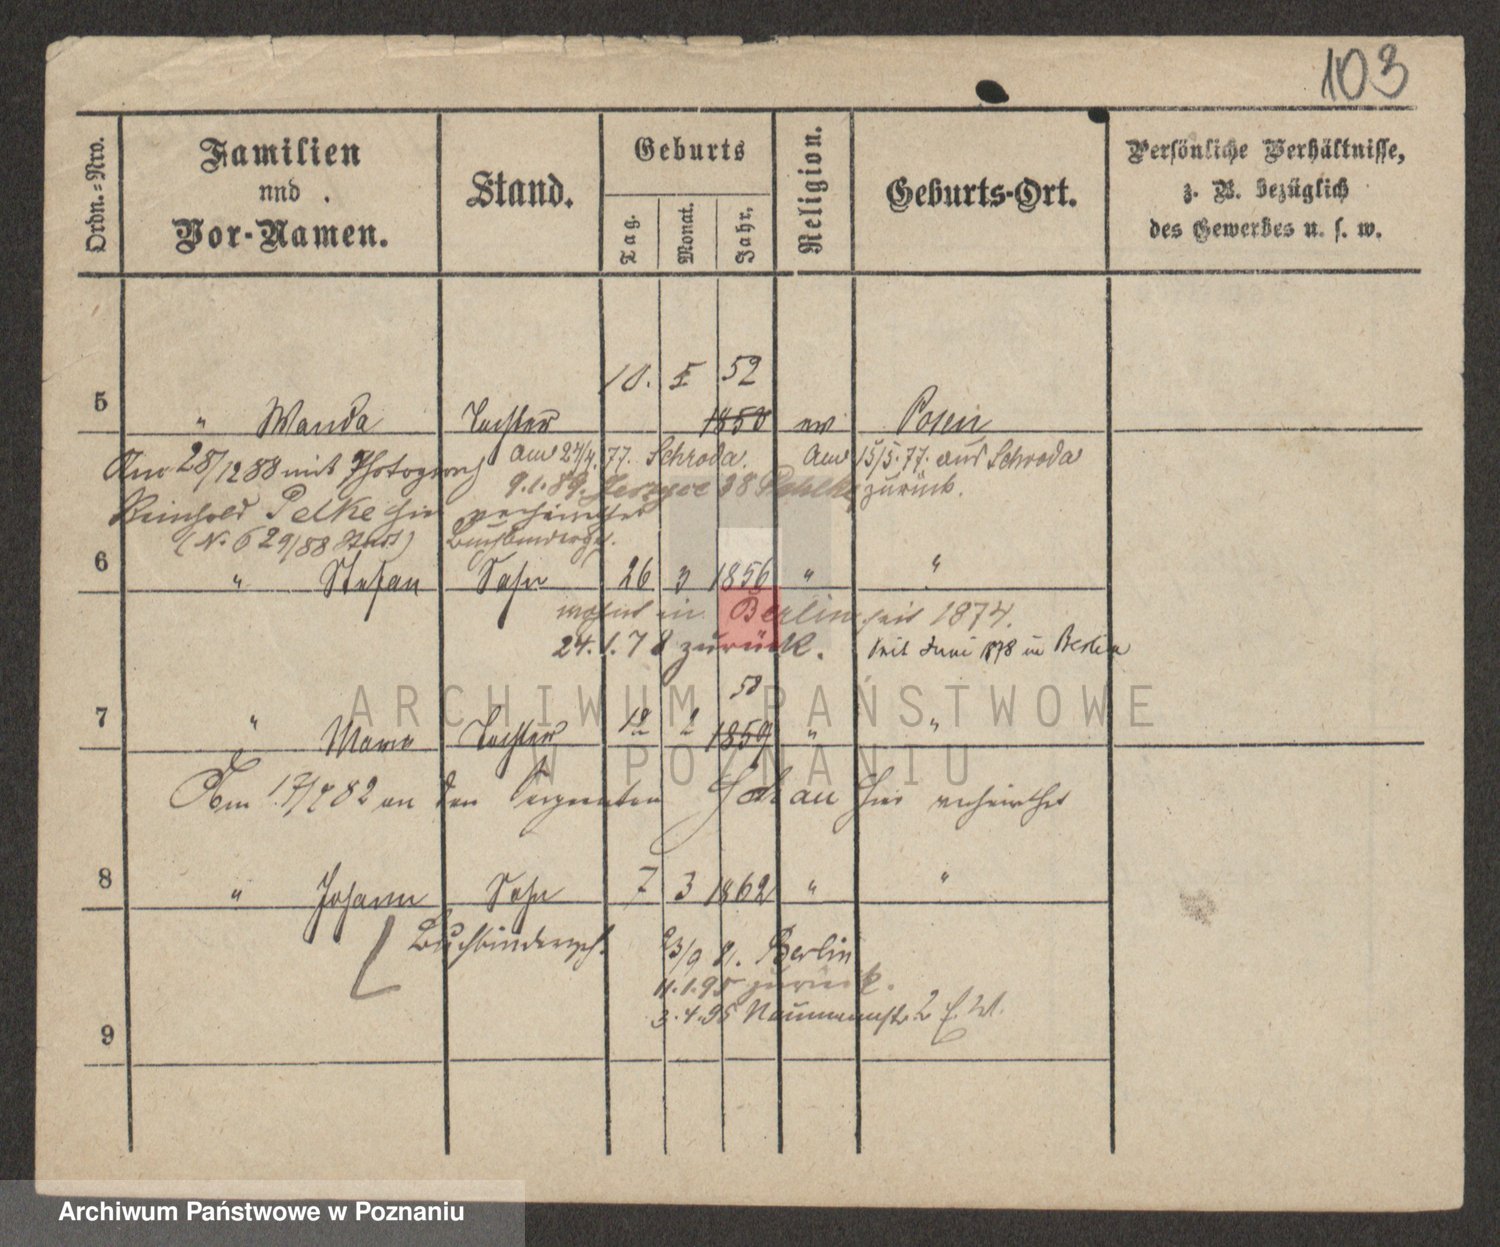 103
Ordn.=Nro.
Familien
und
Vor-Namen.
Stand.
Geburts
Tag.
Monat.
Jahr.
Religion.
Geburts-Ort.
Persönliche Verhältnisse,
z. B. bezüglich
des Gewerbes u. s. w.
10. 5 52
5 " Wanda Tochter 1850 ev Posen
Am 28/12 88 mit Photograph
Am 24/4. 77. Schroda. Am 15/5. 77. aus Schroda
9.1.89. 38 zurück.
Reinhold Pelke hier verheirathet
(N. 629/88 Stdt) Buchbinderges.
6 " Stefan Sohn 26 3 1856 " "
wohnt in Berlin seit 1874.
24.1.78 zurück. Seit Juni 1878 in Berlin
58
7 " Maria Tochter 12 2 1859 " "
ARCHIWUM PAŃSTWOWE
W POZNANIU
Am 17/4 82 an den Sergeanten hier verheirathet
8 " Johann Sohn 7 3 1862 " "
Buchbindergeh. 23/9 81. Berlin
11.1.95 zurück.
3.4.95 Naumannstr. 2
9
Archiwum Państwowe w Poznaniu